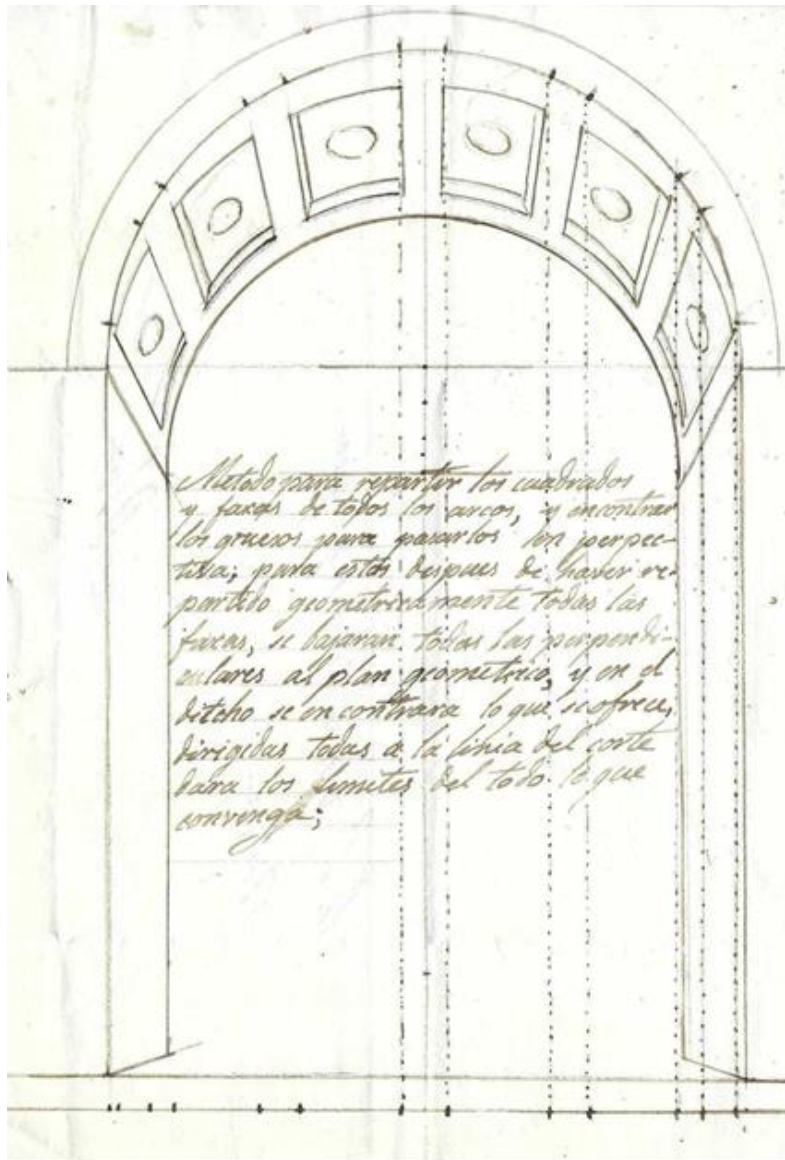 Metodo para repartir los cuadrados
y faxas de todos los arcos, y encontrar
los gruesos para pasarlos en perpec-
tiva; para estos despues de haver re-
partido geometricamente todas las
faxas, se bajaran todas las perpendi-
culares al plan geometrico, y en el
ditcho se encontrara lo que se ofrece,
dirigidas todas a la linia del corte
dara los limites del todo lo que
convenga;